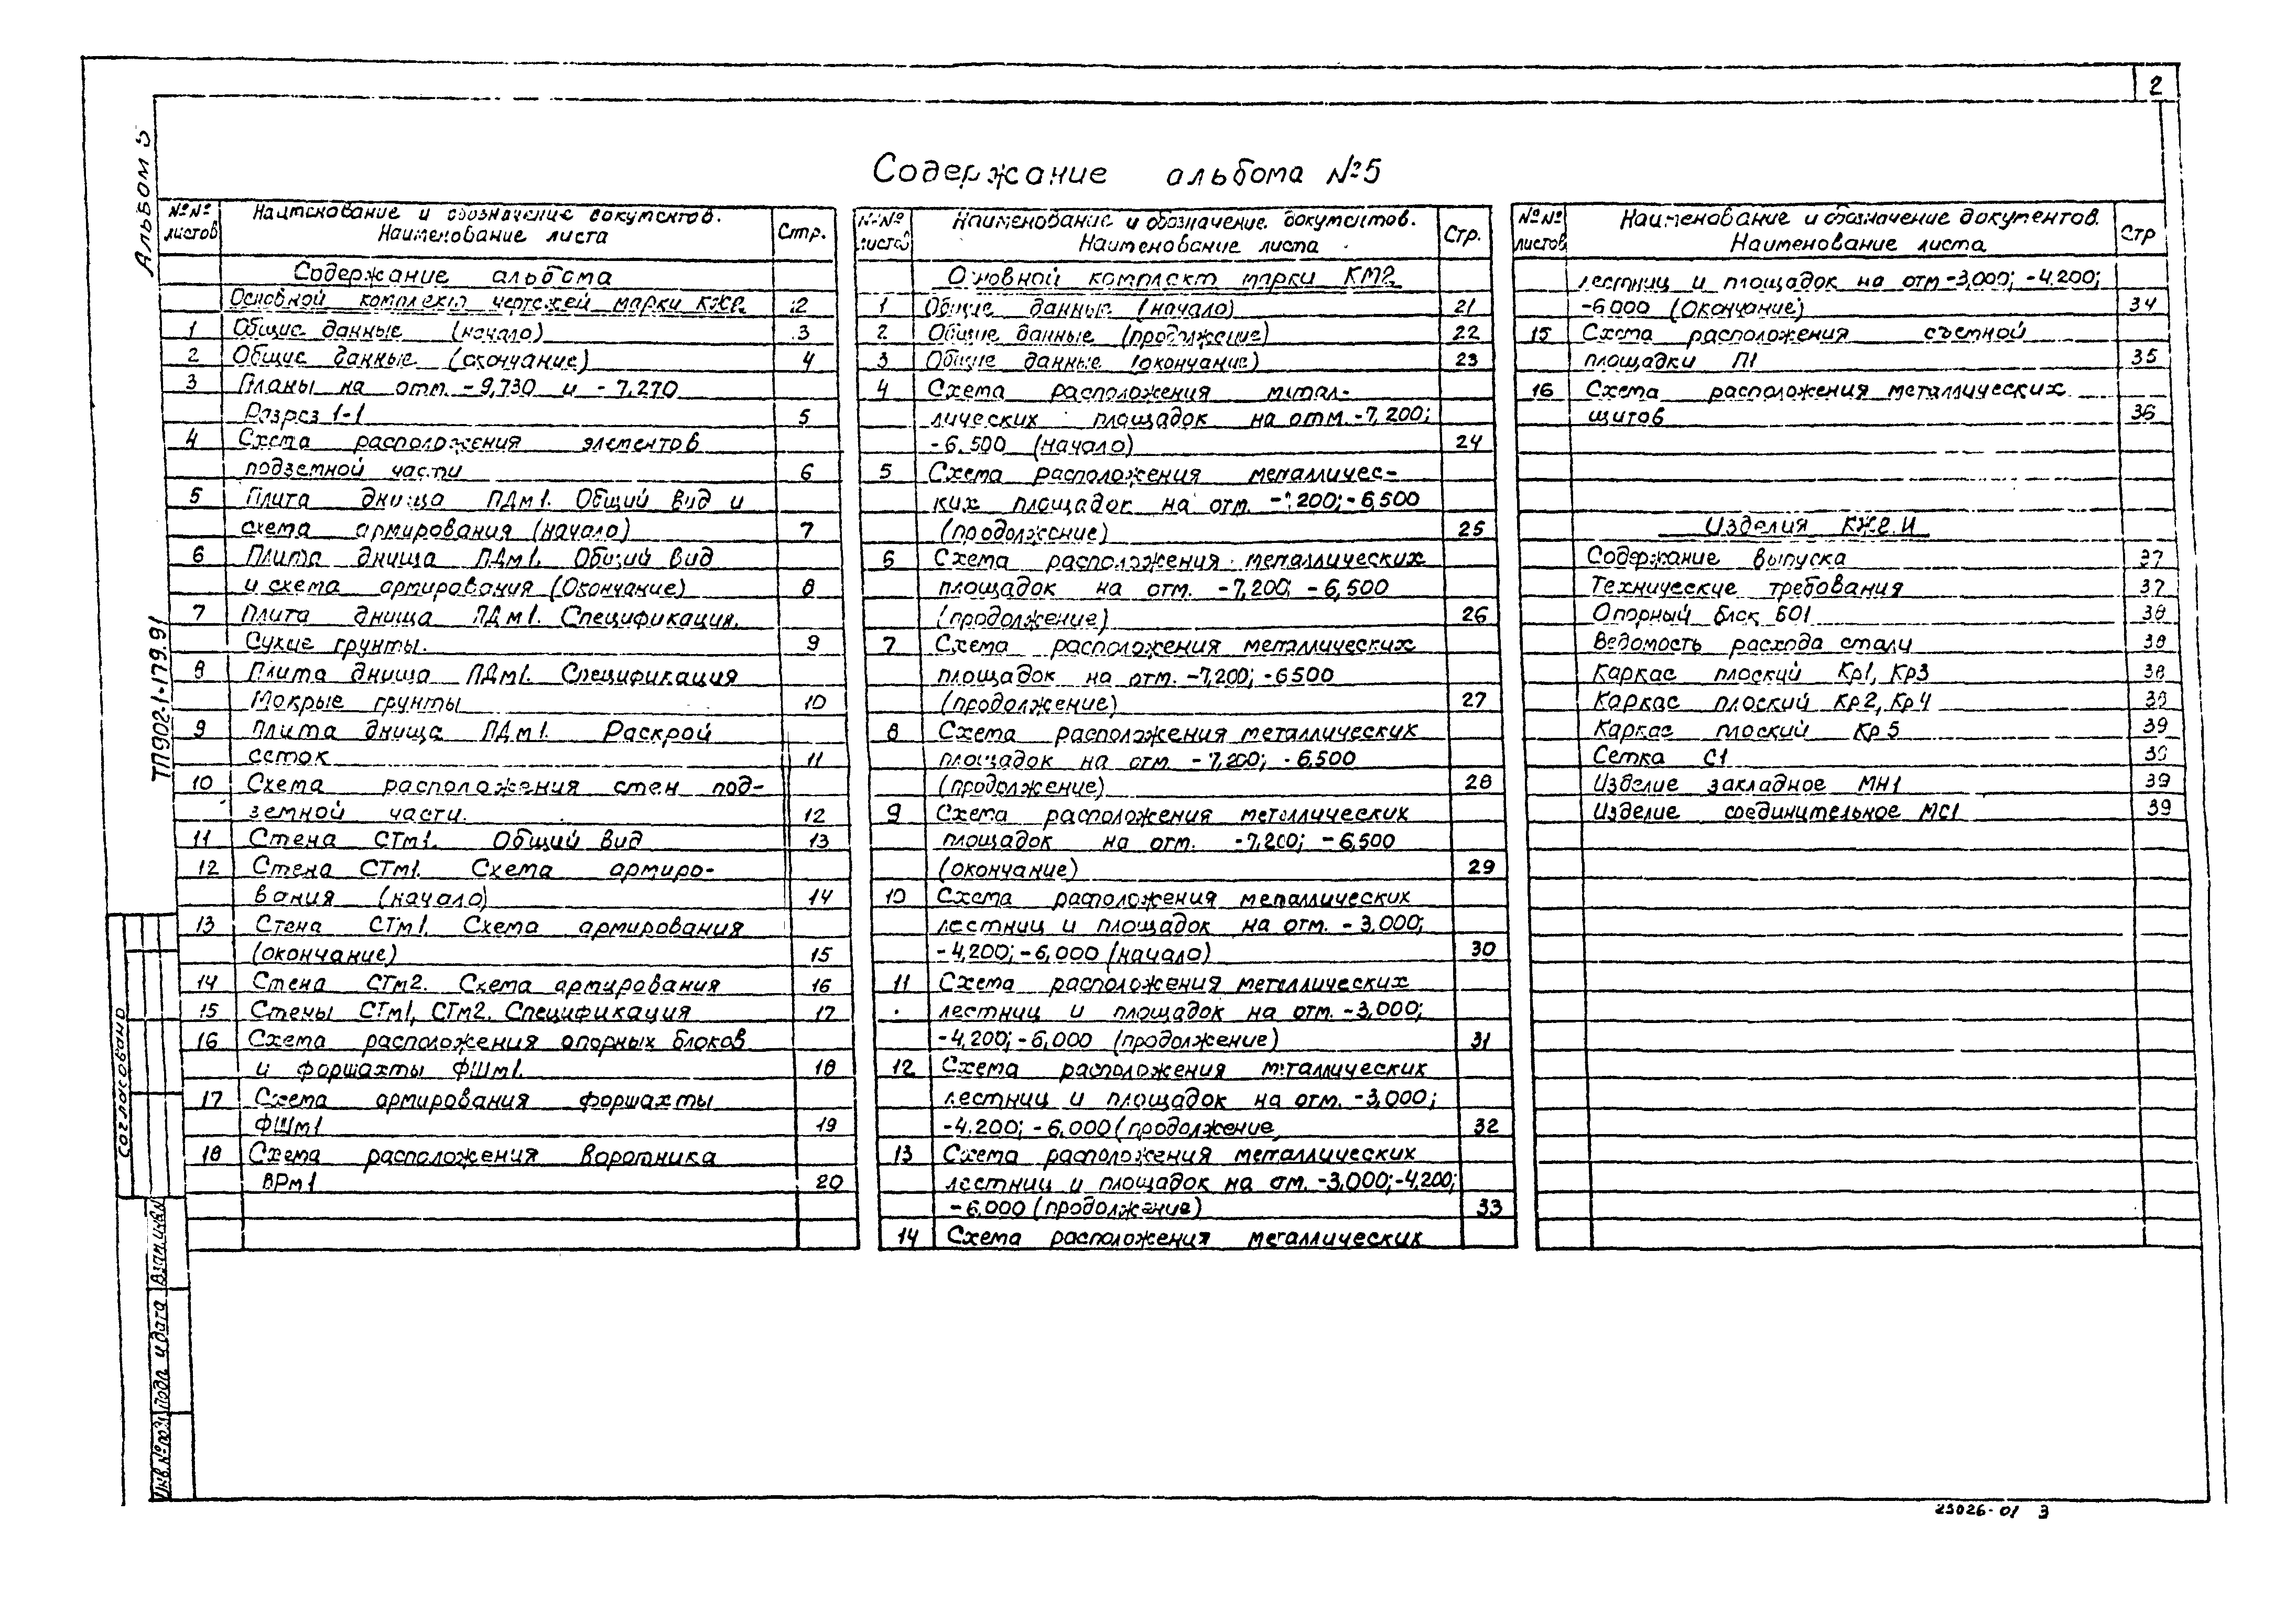 2
Альбом 5
Содержание альбома №5
№№ листов
Наименование и обозначение документов.
Наименование листа
Стр.
Содержание альбома
Основной комплект чертежей марки КЖ2. 2
1 Общие данные (начало) 3
2 Общие данные (окончание) 4
3 Планы на отм. -9,730 и -7,270
Разрез 1-1 5
4 Схема расположения элементов
подземной части 6
5 Плита днища ПДм1. Общий вид и
схема армирования (начало) 7
6 Плита днища ПДм1. Общий вид
и схема армирования (Окончание) 8
7 Плита днища ПДм1. Спецификация.
Сухие грунты. 9
8 Плита днища ПДм1. Спецификация
Мокрые грунты 10
9 Плита днища ПДм1. Раскрой
сеток 11
10 Схема расположения стен под-
земной части. 12
11 Стена СТм1. Общий вид 13
12 Стена СТм1. Схема армиро-
вания (начало) 14
13 Стена СТм1. Схема армирования
(окончание) 15
14 Стена СТм2. Схема армирования 16
15 Стены СТм1, СТм2. Спецификация 17
16 Схема расположения опорных блоков
и форшахты ФШм1. 18
17 Схема армирования форшахты
ФШм1 19
18 Схема расположения воротника
ВРм1 20
№№ листов
Наименование и обозначение документов.
Наименование листа
Стр.
Основной комплект марки КМ2.
1 Общие данные (начало) 21
2 Общие данные (продолжение) 22
3 Общие данные (окончание) 23
4 Схема расположения метал-
лических площадок на отм. -7,200;
-6.500 (начало) 24
5 Схема расположения металличес-
ких площадок на отм. 200; -6,500
(продолжение) 25
6 Схема расположения металлических
площадок на отм. -7,200; -6,500
(продолжение) 26
7 Схема расположения металлических
площадок на отм. -7,200; -6500
(продолжение) 27
8 Схема расположения металлических
площадок на отм -7,200; -6.500
(продолжение) 28
9 Схема расположения металлических
площадок на отм. -7,200; -6,500
(окончание) 29
10 Схема расположения металлических
лестниц и площадок на отм. -3,000;
-4,200; -6,000 (начало) 30
11 Схема расположения металлических
лестниц и площадок на отм. -3,000;
-4,200; -6,000 (продолжение) 31
12 Схема расположения металлических
лестниц и площадок на отм. -3,000;
-4.200; -6,000 (продолжение 32
13 Схема расположения металлических
лестниц и площадок на отм. -3,000; -4,200;
-6,000 (продолжение) 33
14 Схема расположения металлических
№№ листов
Наименование и обозначение документов.
Наименование листа
Стр
лестниц и площадок на отм -3,000; -4.200;
-6000 (Окончание) 34
15 Схема расположения съемной
площадки П1 35
16 Схема расположения металлических
щитов 36
Изделия КЖ2.И
Содержание выпуска 37
Технические требования 37
Опорный блок БО1 38
Ведомость расхода стали 38
Каркас плоский Кр1, Кр3 38
Каркас плоский Кр2, Кр4 39
Каркас плоский Кр5 39
Сетка С1 39
Изделие закладное МН1 39
Изделие соединительное МС1 39
ТП902-1-179.91
Согласовано
Взам.инв.№
Подп. и дата
Инв.№подл
23026-01 3